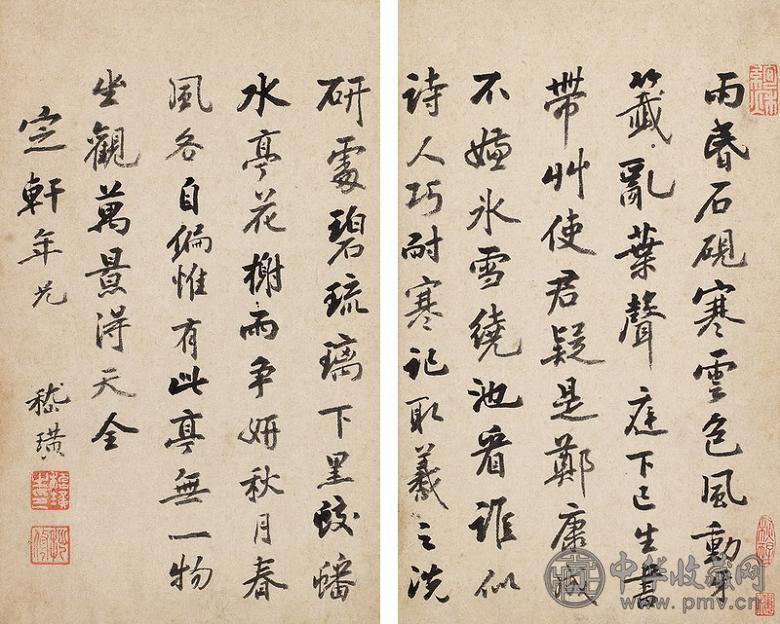 雨昏石硯寒雲色風動牙
籤亂葉聲庭下已生書
帶艸使君疑是鄭康成
不嫌氷雪繞池看誰似
詩人巧耐寒記取羲之洗
研處碧琉璃下黑蛟蟠
水亭花榭兩爭妍秋月春
風各自偏惟有此亭無一物
坐觀萬景得天全
定軒年兄
嵇璜
中华收藏网
www.pmv.cn